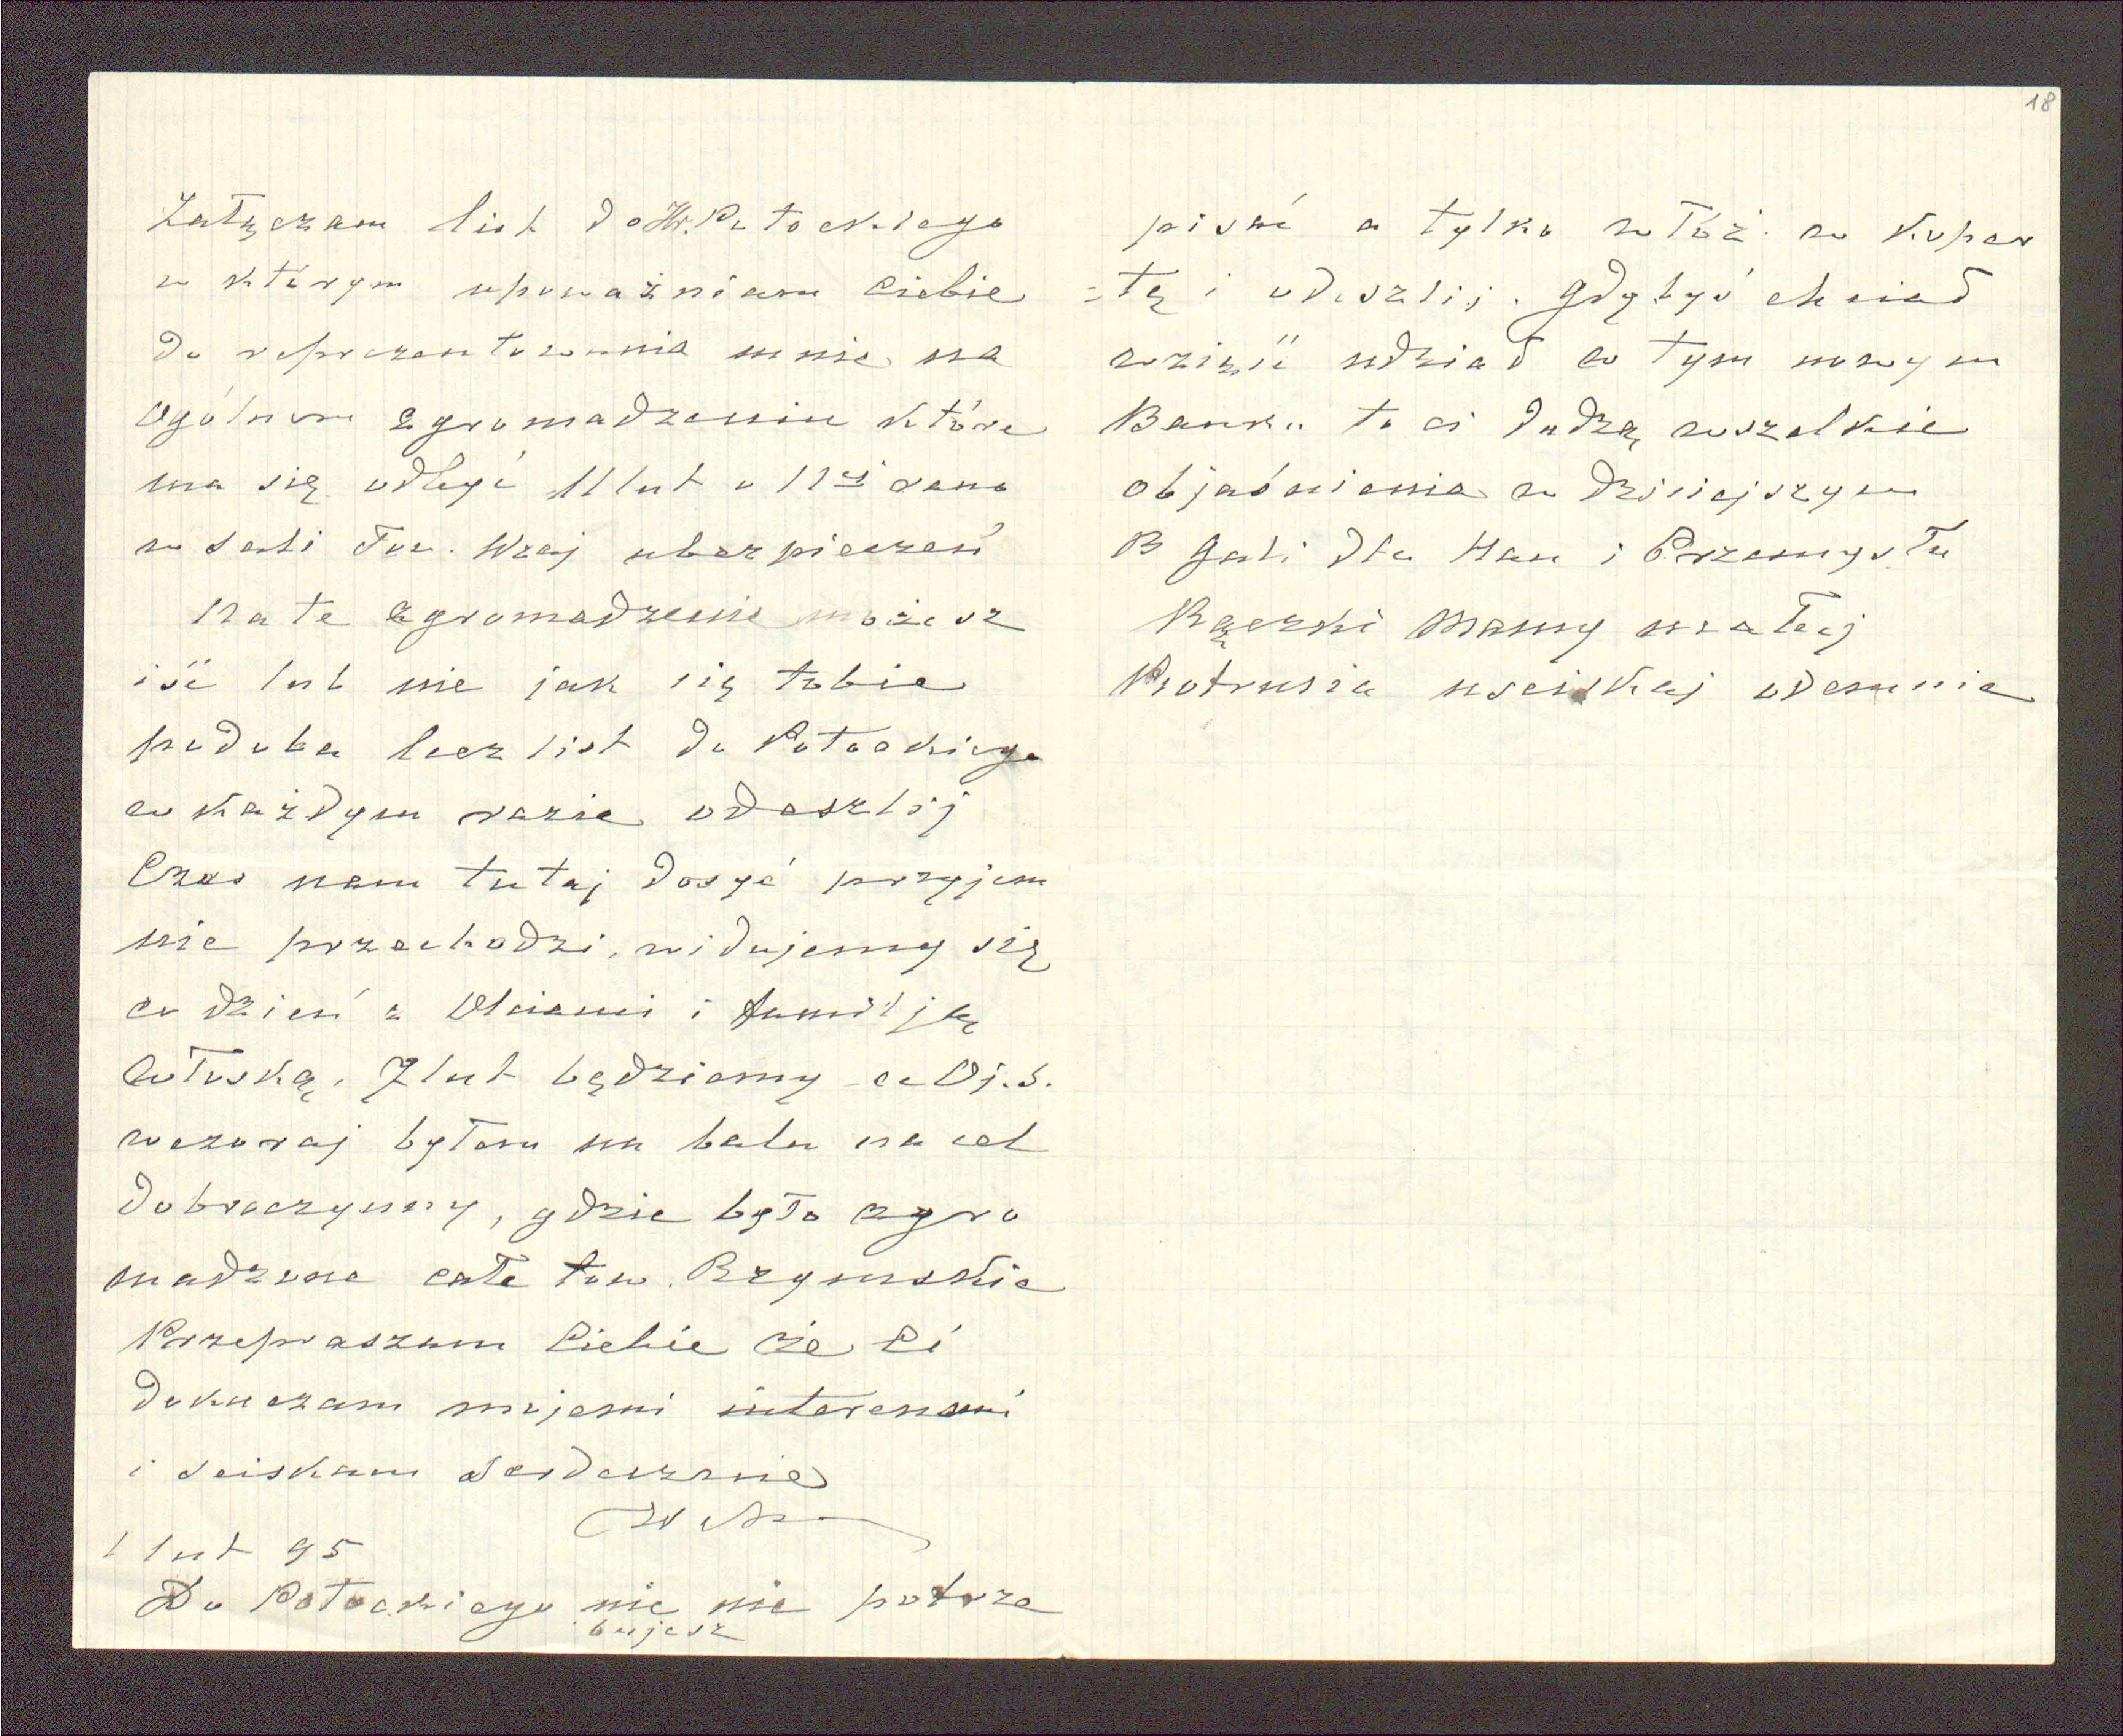 Załączam list do Hr. Potockiego
w którym upoważniam Ciebie
do reprezentowania mnie na
Ogólnem zgromadzeniu które
ma się odbyć 11 lut o 11ej rano
w sali Tow. Wzaj ubezpieczeń
Na te zgromadzenie możesz
iść lub nie jak się tobie
podoba lecz list do Potockiego
w każdym razie odeszlij
Czas nam tutaj dosyć przyjem
nie przechodzi, widujemy się
co dzień z i familją
włoską, 7 lut będziemy u Oj. S.
wczoraj byłem na balu na cel
dobroczynny, gdzie było zgro
madzone całe tow. Rzymskie
Przepraszam Ciebie że Ci
dokuczam mojemi interesami
i sciskam Serdecznie
1 lut 95
Do Potockiego nic nie potrze
bujesz
18
pisać a tylko włóż w koper
=tę i odeszlij. Gdybyś chciał
wziąść udział w tym nowym
Banku to ci dadzą wszelkie
objaśnienia w dzisiejszym
B Gali dla Han i Przemysłu
Rączki Mamy całuj
Piotrusia uściskaj odemnie